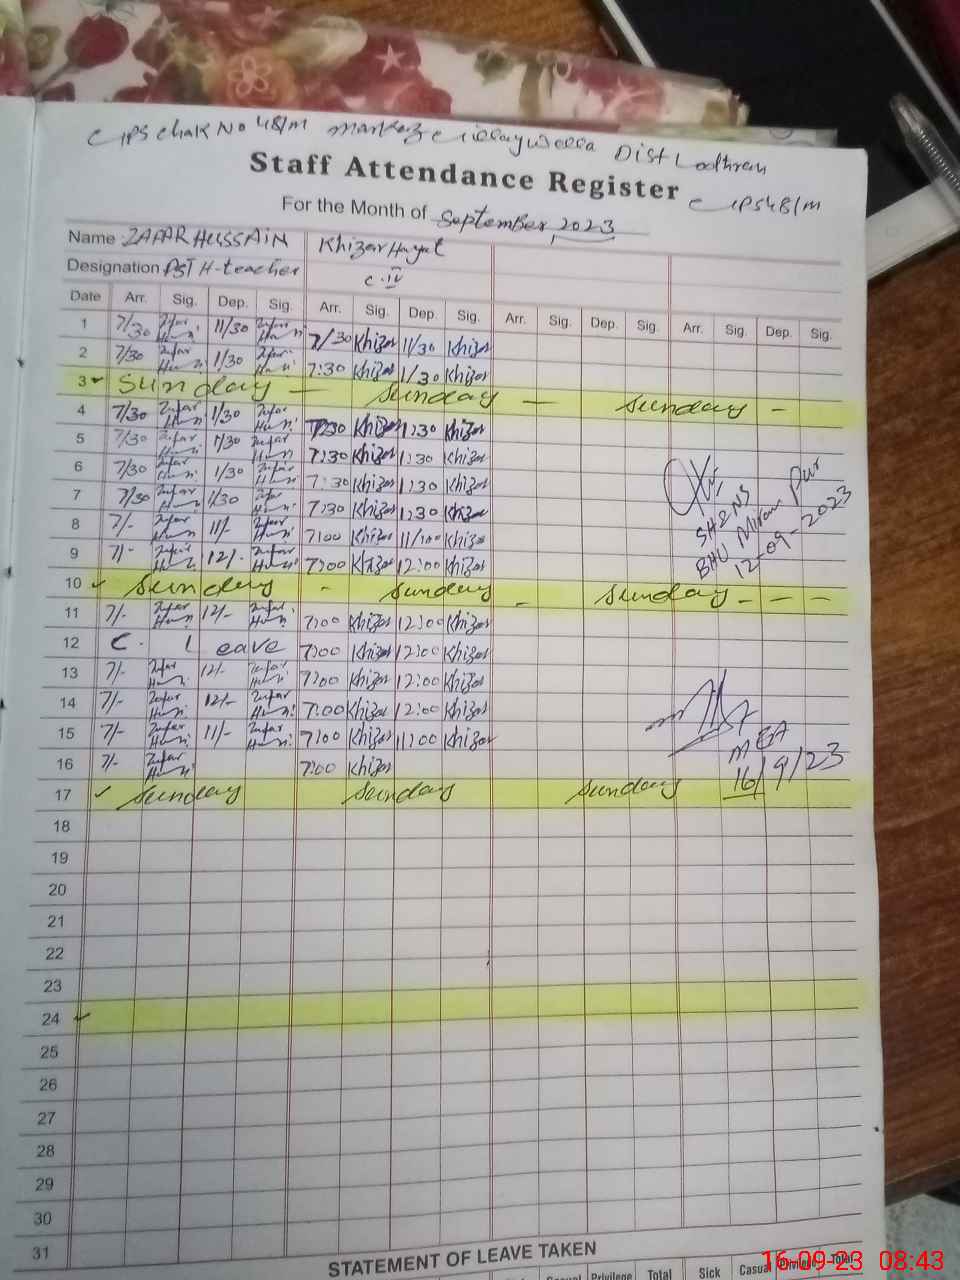 Chak No 48/M Markaz Dist Lodhran
Staff Attendance Register
PS 48/M
For the Month of September, 2023
Name ZAFAR HUSSAIN Khizar Hayat
Designation PST H-teacher C.IV
Date Arr. Sig. Dep. Sig. Arr. Sig. Dep. Sig. Arr. Sig. Dep. Sig. Arr. Sig. Dep. Sig.
1 7/30 Zafar 11/30 Zafar 7/30 Khizar 11/30 Khizar
2 7/30 Zafar 1/30 Zafar 7:30 Khizar 1/30 Khizar
3 Sunday — Sunday — Sunday -
4 7/30 Zafar 1/30 Zafar 7:30 Khizar 1:30 Khizar
5 7/30 Zafar 1/30 Zafar 7:30 Khizar 1:30 Khizar
6 7/30 Zafar 1/30 Zafar 7:30 Khizar 1:30 Khizar
7 7/30 Zafar 1/30 Zafar 7:30 Khizar 1:30 Khizar
8 7/- Zafar 11/- Zafar 7:00 Khizar 11/00 Khizar
9 7/- Zafar 12/- Zafar 7:00 Khizar 12:00 Khizar
SH&NS
BHU Miran Pur
12-09-2023
10 Sunday - Sunday - Sunday - - -
11 7/- Zafar 12/- Zafar 7:00 Khizar 12:00 Khizar
12 C. Leave 7:00 Khizar 12:00 Khizar
13 7/- Zafar 12/- Zafar 7:00 Khizar 12:00 Khizar
14 7/- Zafar 12/- Zafar 7:00 Khizar 12:00 Khizar
15 7/- Zafar 11/- Zafar 7:00 Khizar 11:00 Khizar
16 7/- Zafar 7:00 Khizar
MEA
16/9/23
17 Sunday Sunday Sunday
18
19
20
21
22
23
24
25
26
27
28
29
30
31
STATEMENT OF LEAVE TAKEN
Casual Privilege Total Sick Casual Privilege Total
16-09-23 08:43